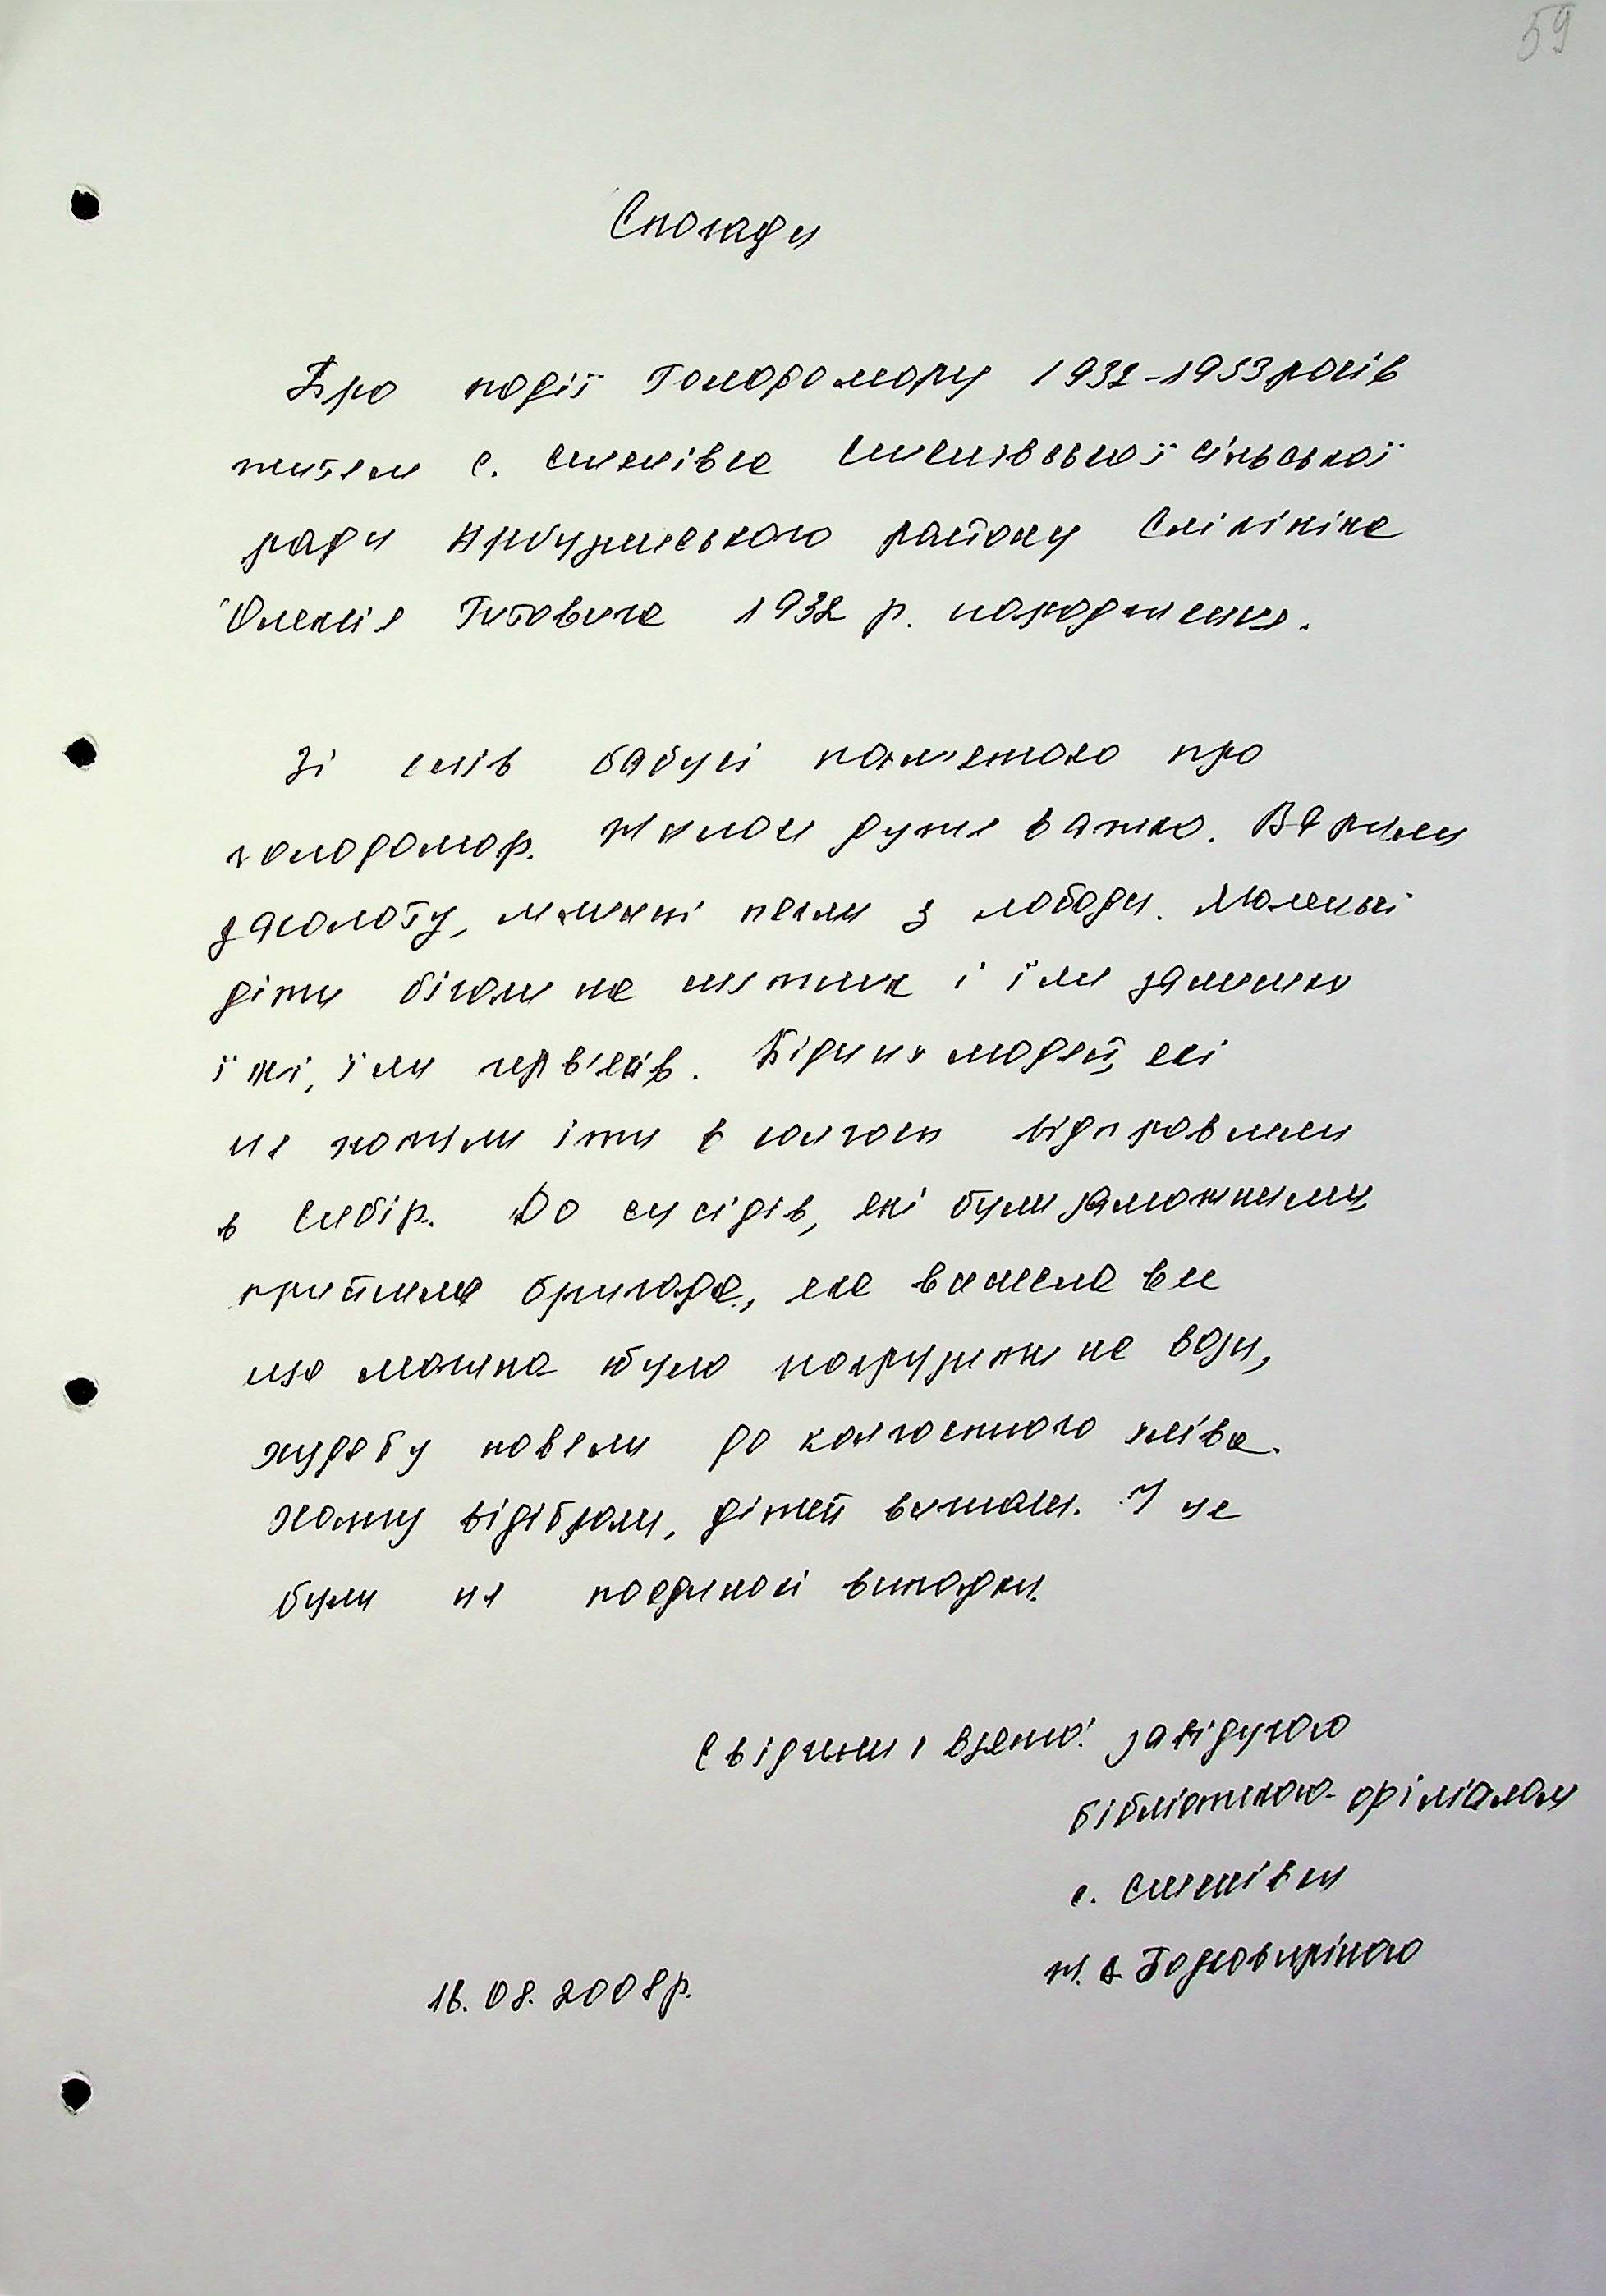 59
Спогади
Про події Голодомору 1932-1933 років
жителя с. Семенівка Семенівської сільської
ради Арбузинського району
Олексія Титовича 1932 р. народження.
Зі слів бабусі пам'ятаю про
голодомор. Жилося дуже важко. Варили
затолоту, млинці пекли з лободи. Маленькі
діти бігали на смітник і їли залишки
їжі, їли черв'яків. Бідних людей, які
не хотіли іти в колгосп відправляли
в Сибір. До сусідів, які були заможними,
прийшла бригада, яка винесла все
що можна було погрузити на вози,
худобу повели до колгоспного хліва.
Хату відібрали, дітей вигнали. І це
були не поодинокі випадки.
Свідчення взято: завідуючою
бібліотекою-філіалом
с. Семенівки
16.08.2008р.